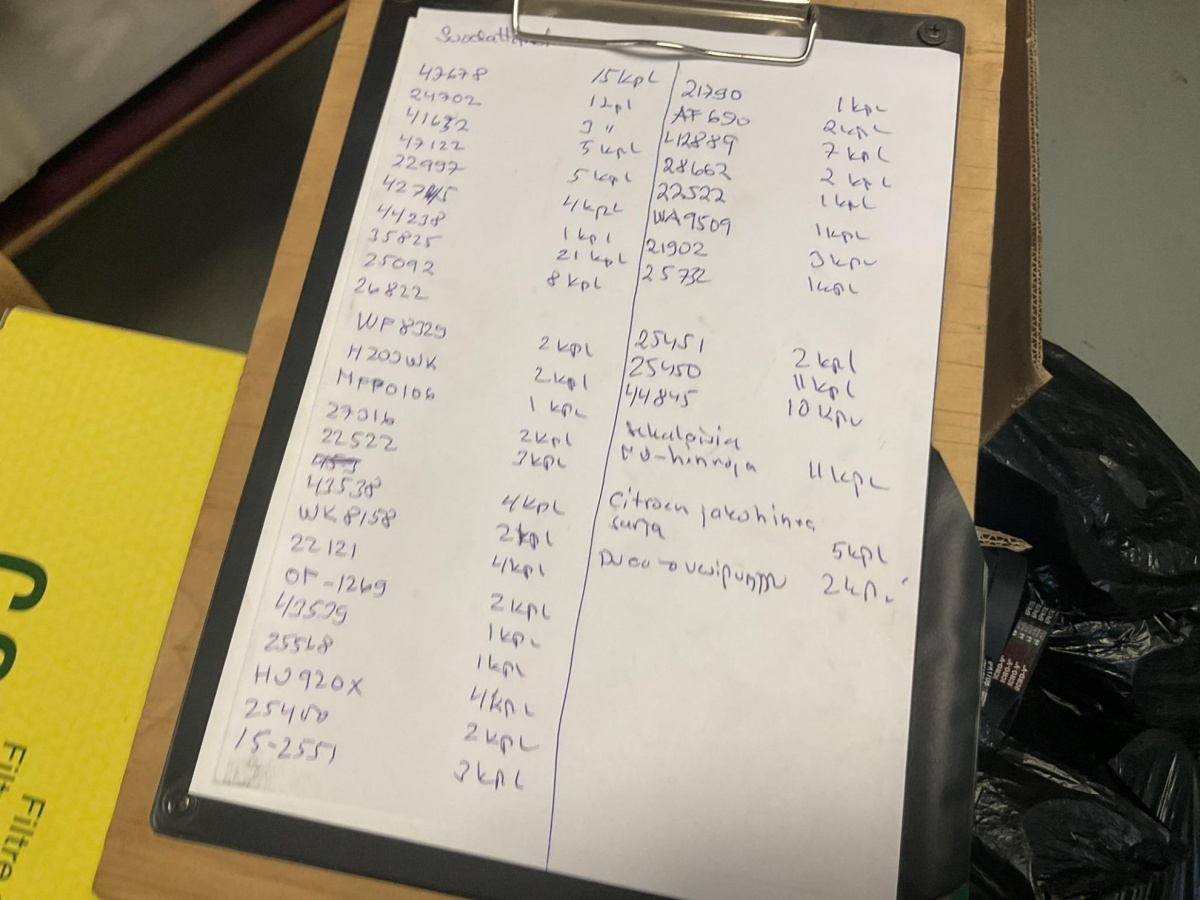 Suodattimet
47678 15 kpl
24702 1 kpl
41632 3 "
47122 5 kpl
22997 5 kpl
42745 4 kpl
44238 1 kpl
35825 21 kpl
25092 8 kpl
26822
WP8329 2 kpl
H203WK 2 kpl
MPP0106 1 kpl
27316 2 kpl
22522 3 kpl
43538 4 kpl
WK8158 2 kpl
22121 4 kpl
OF-1269 2 kpl
43539 1 kpl
25568 1 kpl
HU920X 4 kpl
25450 2 kpl
15-2551 3 kpl
21790 1 kpl
AF690 2 kpl
42889 7 kpl
28662 2 kpl
22522 1 kpl
WA9509 1 kpl
21902 3 kpl
25732 1 kpl
25451 2 kpl
25450 11 kpl
44845 10 kpl
sekalaisia
mo-hihnoja 11 kpl
Citroen jakohihna
sarja 5 kpl
2 kpl
Filtre